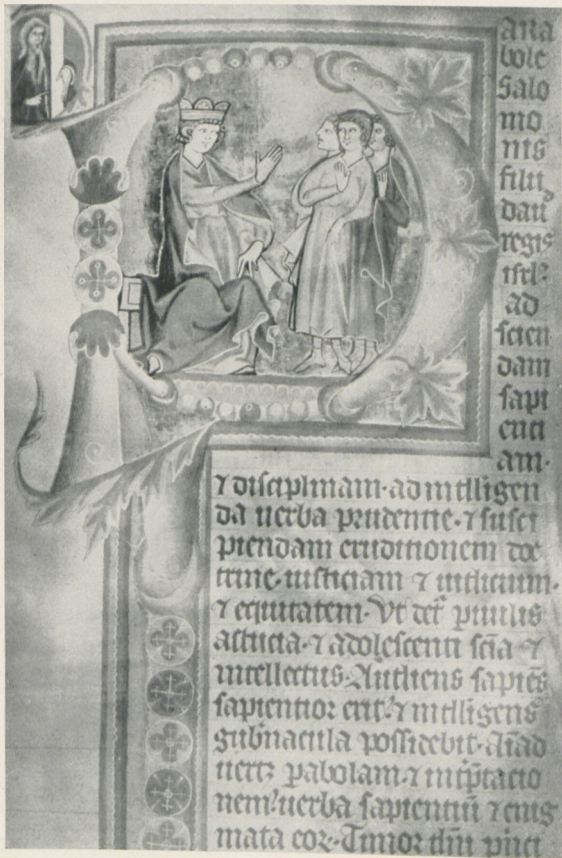 ana
bole
Salo
mo
nis
filii
dauid
regis
isrl'.
ad
scien
dam
sapi
enti
am.
⁊ disciplinam. ad intelligen
da uerba prudentie. ⁊ susci
piendam eruditionem doc
trine. iusticiam ⁊ iudicium.
⁊ equitatem. Vt det' pıulis
astucia. ⁊ adolescenti scı̄a ⁊
intellectus. Audiens sapiēs
sapientior erit. ⁊ intelligens
gub̄nacula possidebit.
uertꝫ pabolam. ⁊ int̄p̄tacio
nem. uerba sapientiū ⁊ enig
mata eoꝝ. Timor dn̄i